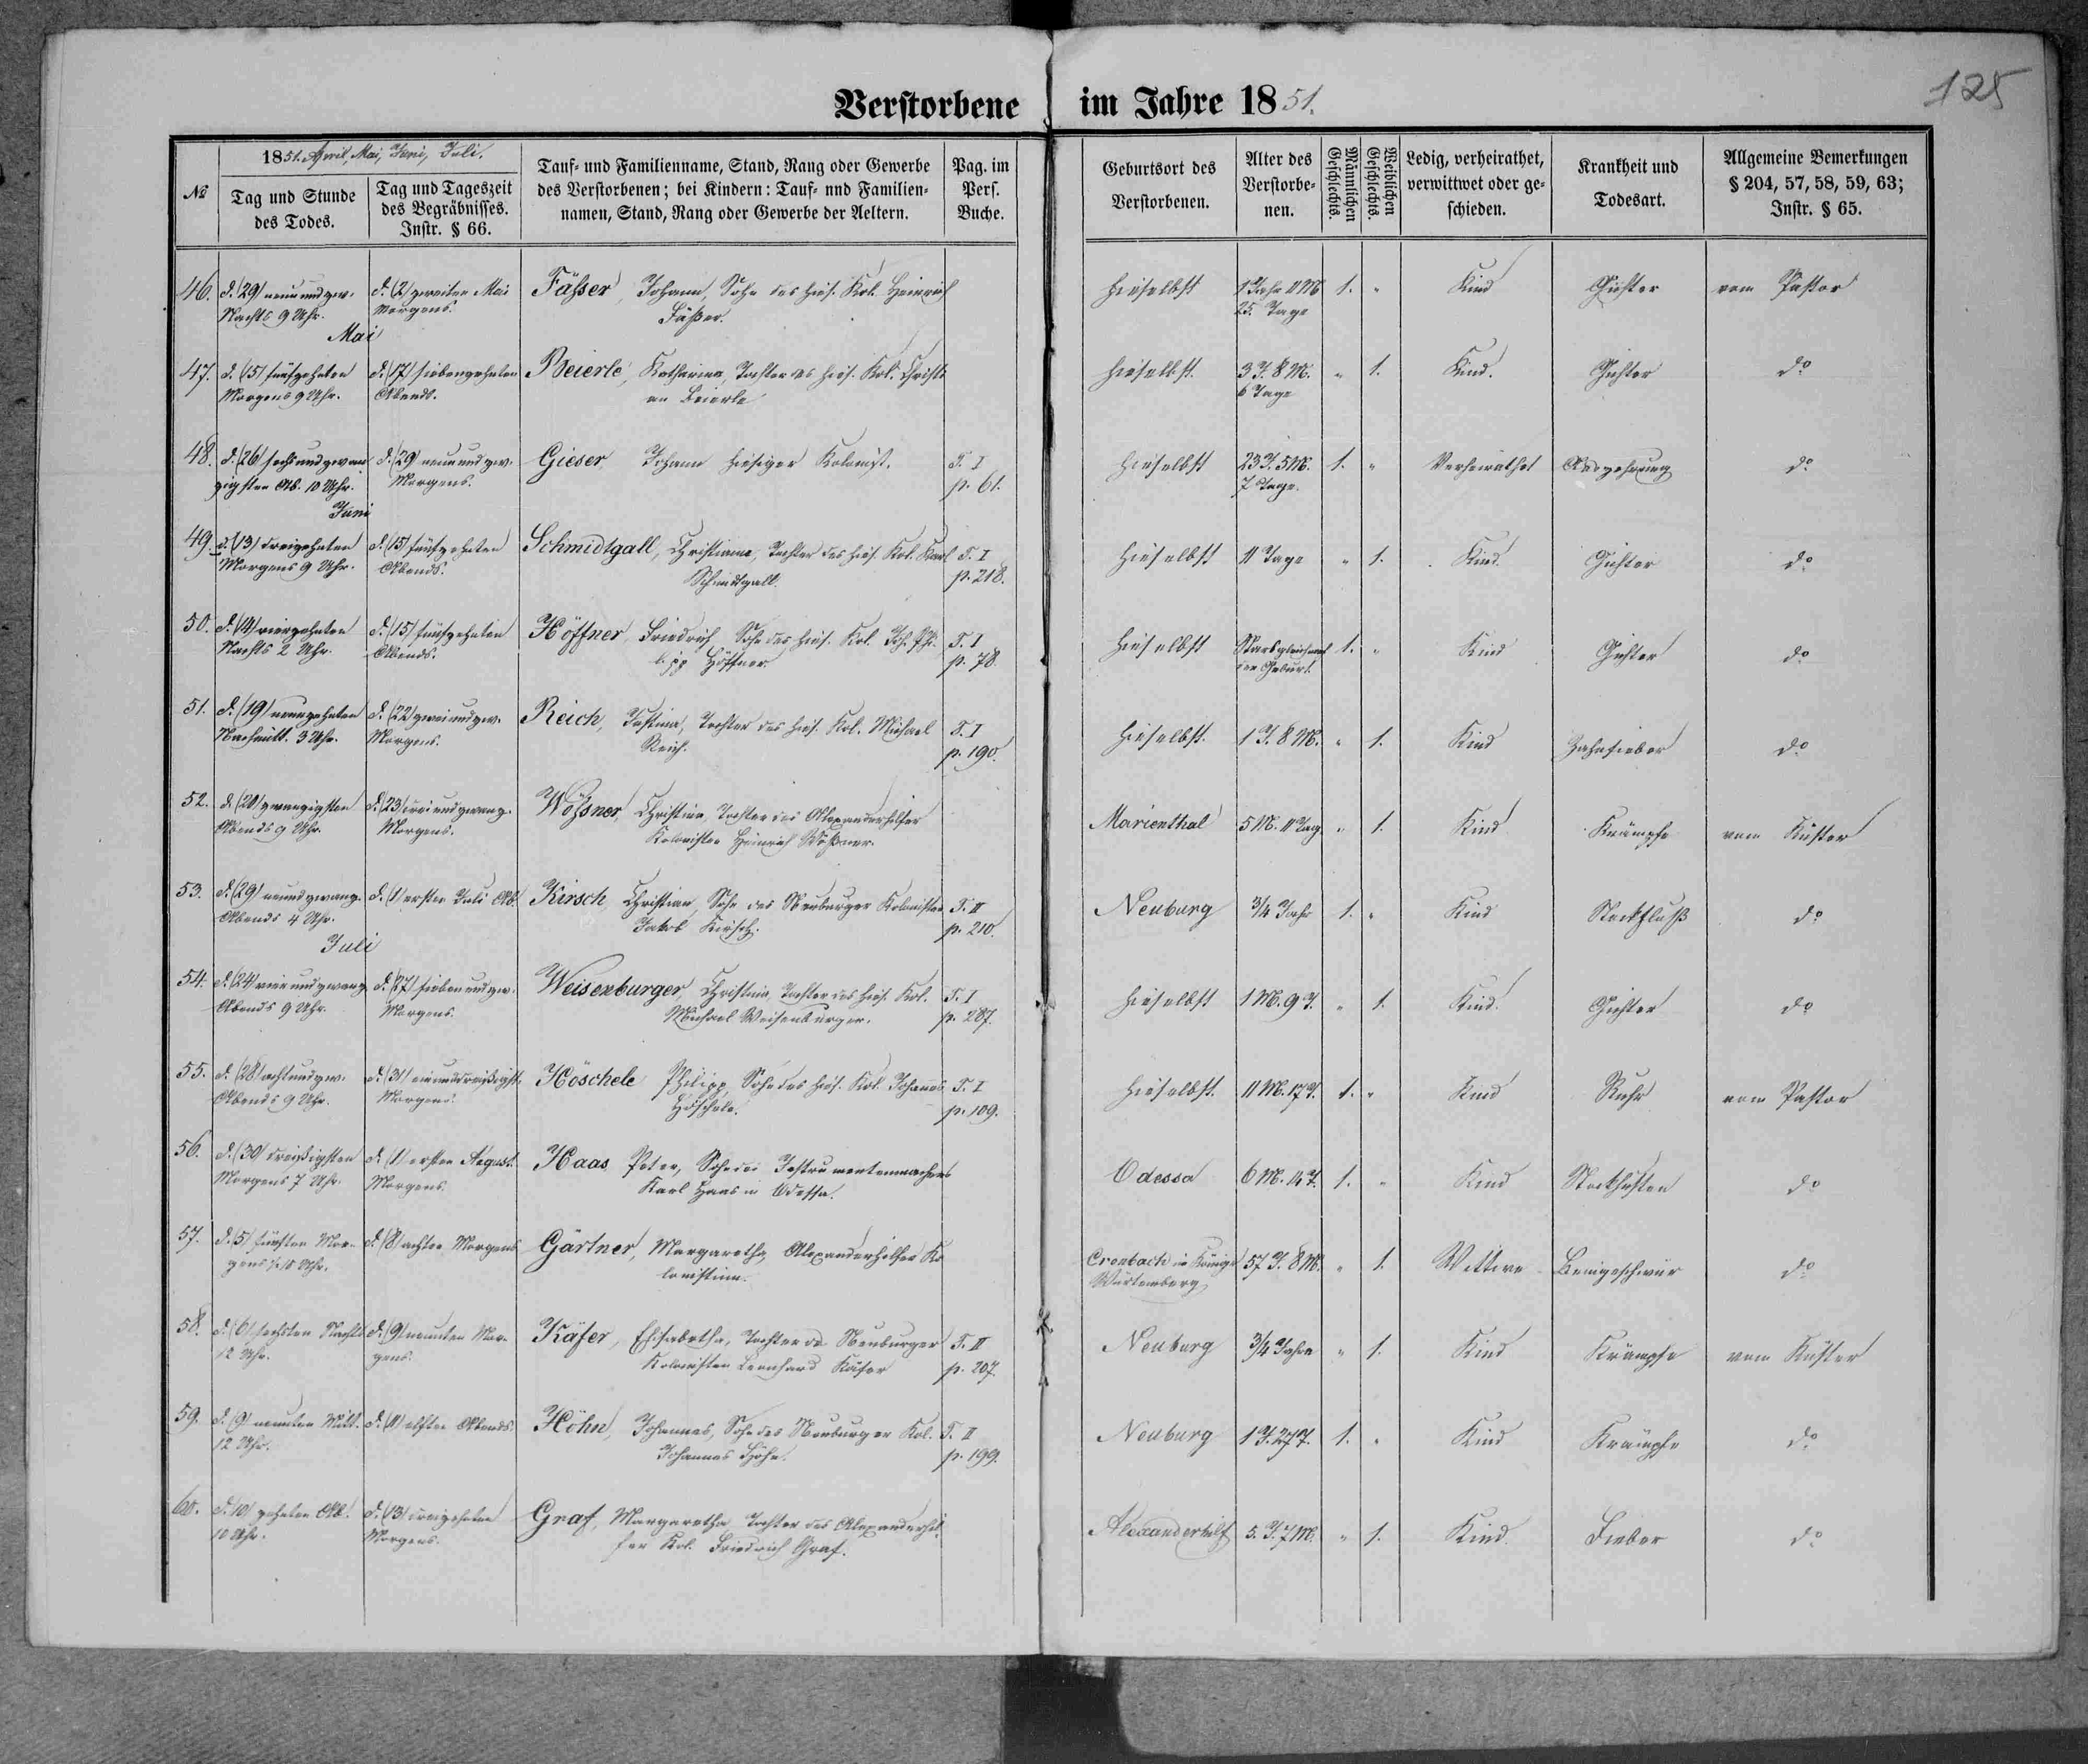 125
Verstorbene im Jahre 1851.
1851. April, Mai, Juni, Juli.
№
Tag und Stunde des Todes.
Tag und Tageszeit des Begräbnisses. Instr. § 66.
Tauf- und Familienname, Stand, Rang oder Gewerbe des Verstorbenen; bei Kindern: Tauf- und Familien-namen, Stand, Rang oder Gewerbe der Aeltern.
Pag. im Pers. Buche.
Geburtsort des Verstorbenen.
Alter des Verstorbe-nen.
Männlichen Geschlechts.
Weiblichen Geschlechts.
Ledig, verheirathet, verwittwet oder ge-schieden.
Krankheit und Todesart.
Allgemeine Bemerkungen § 204, 57, 58, 59, 63; Instr. § 65.
46. d. (29) neunundzw. d. (2) zweiten Mai Fässer, Johann, Sohn des hies. Kol. Heinrich hieselbst 1 Jahr 11 M. 1. " Kind Gichter vom Pastor
Nachts 9 Uhr. Morgens. Fässer. 25. Tage
Mai
47. d. (15) fünfzehnten d. (17) siebenzehnten Beierle, Katharina, Tochter des hies. Kol. Christi hieselbst. 3 J. 8 M. " 1. Kind. Gichter do
Morgens 9 Uhr. Abends. an Beierle 6 Tage
48. d. (26) sechsundzwan d. (29) neunundzw. Gieser Johann hiesiger Kolonist. T. I hieselbst 23 J. 5 M. 1. " Verheirathet Auszehrung do
zigsten Ab. 10 Uhr. Morgens. p. 61. 7 Tage.
Juni
49. d. (13) dreizehnten d. (15) fünfzehnten Schmidtgall, Christiana, Tochter des hies. Kol. Karl T. I hieselbst 11 Tage " 1. Kind. Gichter do
Morgens 9 Uhr. Abends. Schmidtgall. p. 218.
50. d. (14) vierzehnten d. (15) fünfzehnten Höffner Friedrich Sohn des hies. Kol. Joh. Phi- T. I hieselbst Starb gleich nach 1. " Kind Gichter do
Nachts 2 Uhr. Abends. lipp Höffner. p. 78. der Geburt.
51. d. (19) neunzehnten d. (22) zweiundzw. Reich, Justina, Tochter des hies. Kol. Michael T. I hieselbst. 1 J. 8 M. " 1. Kind Zahnfieber do
Nachmitt. 3 Uhr. Morgens. Reich. p. 190.
52. d. (20) zwanzigsten d. (23) dreiundzwanz. Wößner, Christina, Tochter des Alexanderhilfer Marienthal 5 M. 11 Tag " 1. Kind Krämpfe vom Küster
Abends 9 Uhr. Morgens. Kolonisten Heinrich Wößner.
53. d. (29) neunundzwanz. d. (1) ersten Juli Ab. Kirsch, Christian, Sohn des Neuburger Kolonisten T. II Neuburg 3/4 Jahr 1. " Kind Steckfluß do
Abends 4 Uhr. Jakob Kirsch. p. 210.
Juli
54. d. (24) vierundzwanz d. (27) siebenundzw. Weisenburger, Christina, Tochter des hies. Kol. T. I hieselbst 1 M. 9 T. " 1. Kind. Gichter do
Abends 9 Uhr. Morgens. Michael Weisenburger. p. 287.
55. d. (28) achtundzw. d. (31) einunddreißigst. Höschele Philipp, Sohn des hies. Kol. Johannes T. I hieselbst. 11 M. 17 T. 1. " Kind Ruhr vom Pastor
Abends 9 Uhr. Morgens. Höschele. p. 109.
56. d. (30) dreißigsten d. (1) ersten August. Haas Peter, Sohn des Instrumentenmachers Odessa 6 M. 14 T. 1. " Kind Stockhusten do
Morgens 7 Uhr. Morgens. Karl Haas in Odessa.
57. d. (5) fünften Mor- d. (8) achten Morgens Gärtner, Margaretha, Alexanderhilfer Ko Cronbach im Königr 57 J. 8 M. " 1. Wittwe do
gens 1/2 10 Uhr. lonistin. Würtemberg
58. d. (6) sechsten Nachts d. (9) neunten Mor- Käfer, Elisabetha, Tochter des Neuburger T. II Neuburg 3/4 Jahre " 1. Kind Krämpfe vom Küster
12 Uhr. gens. Kolonisten Leonhard Käfer p. 207.
59. d. (9) neunten Mitt. d. (11) elften Abends. Höhn, Johannes, Sohn des Neuburger Kol. T. II Neuburg 1 J. 27 T. 1. " Kind Krämpfe do
12 Uhr. Johannes Höhn. p. 199.
60. d. (10) zehnten Ab. d. (13) dreizehnten Graf, Margaretha Tochter des Alexanderhil Alexanderhilf 5. J. 7 M. " 1. Kind Fieber do
10 Uhr. Morgens. fer Kol. Friedrich Graf.